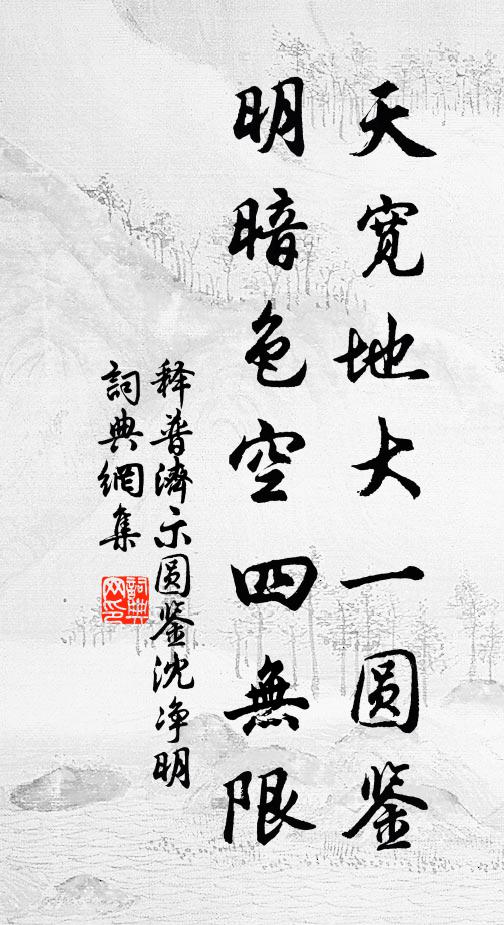 天寬地大一圆鉴
明暗色空四無限
释普濟示圆鉴沈净明
詞典網集